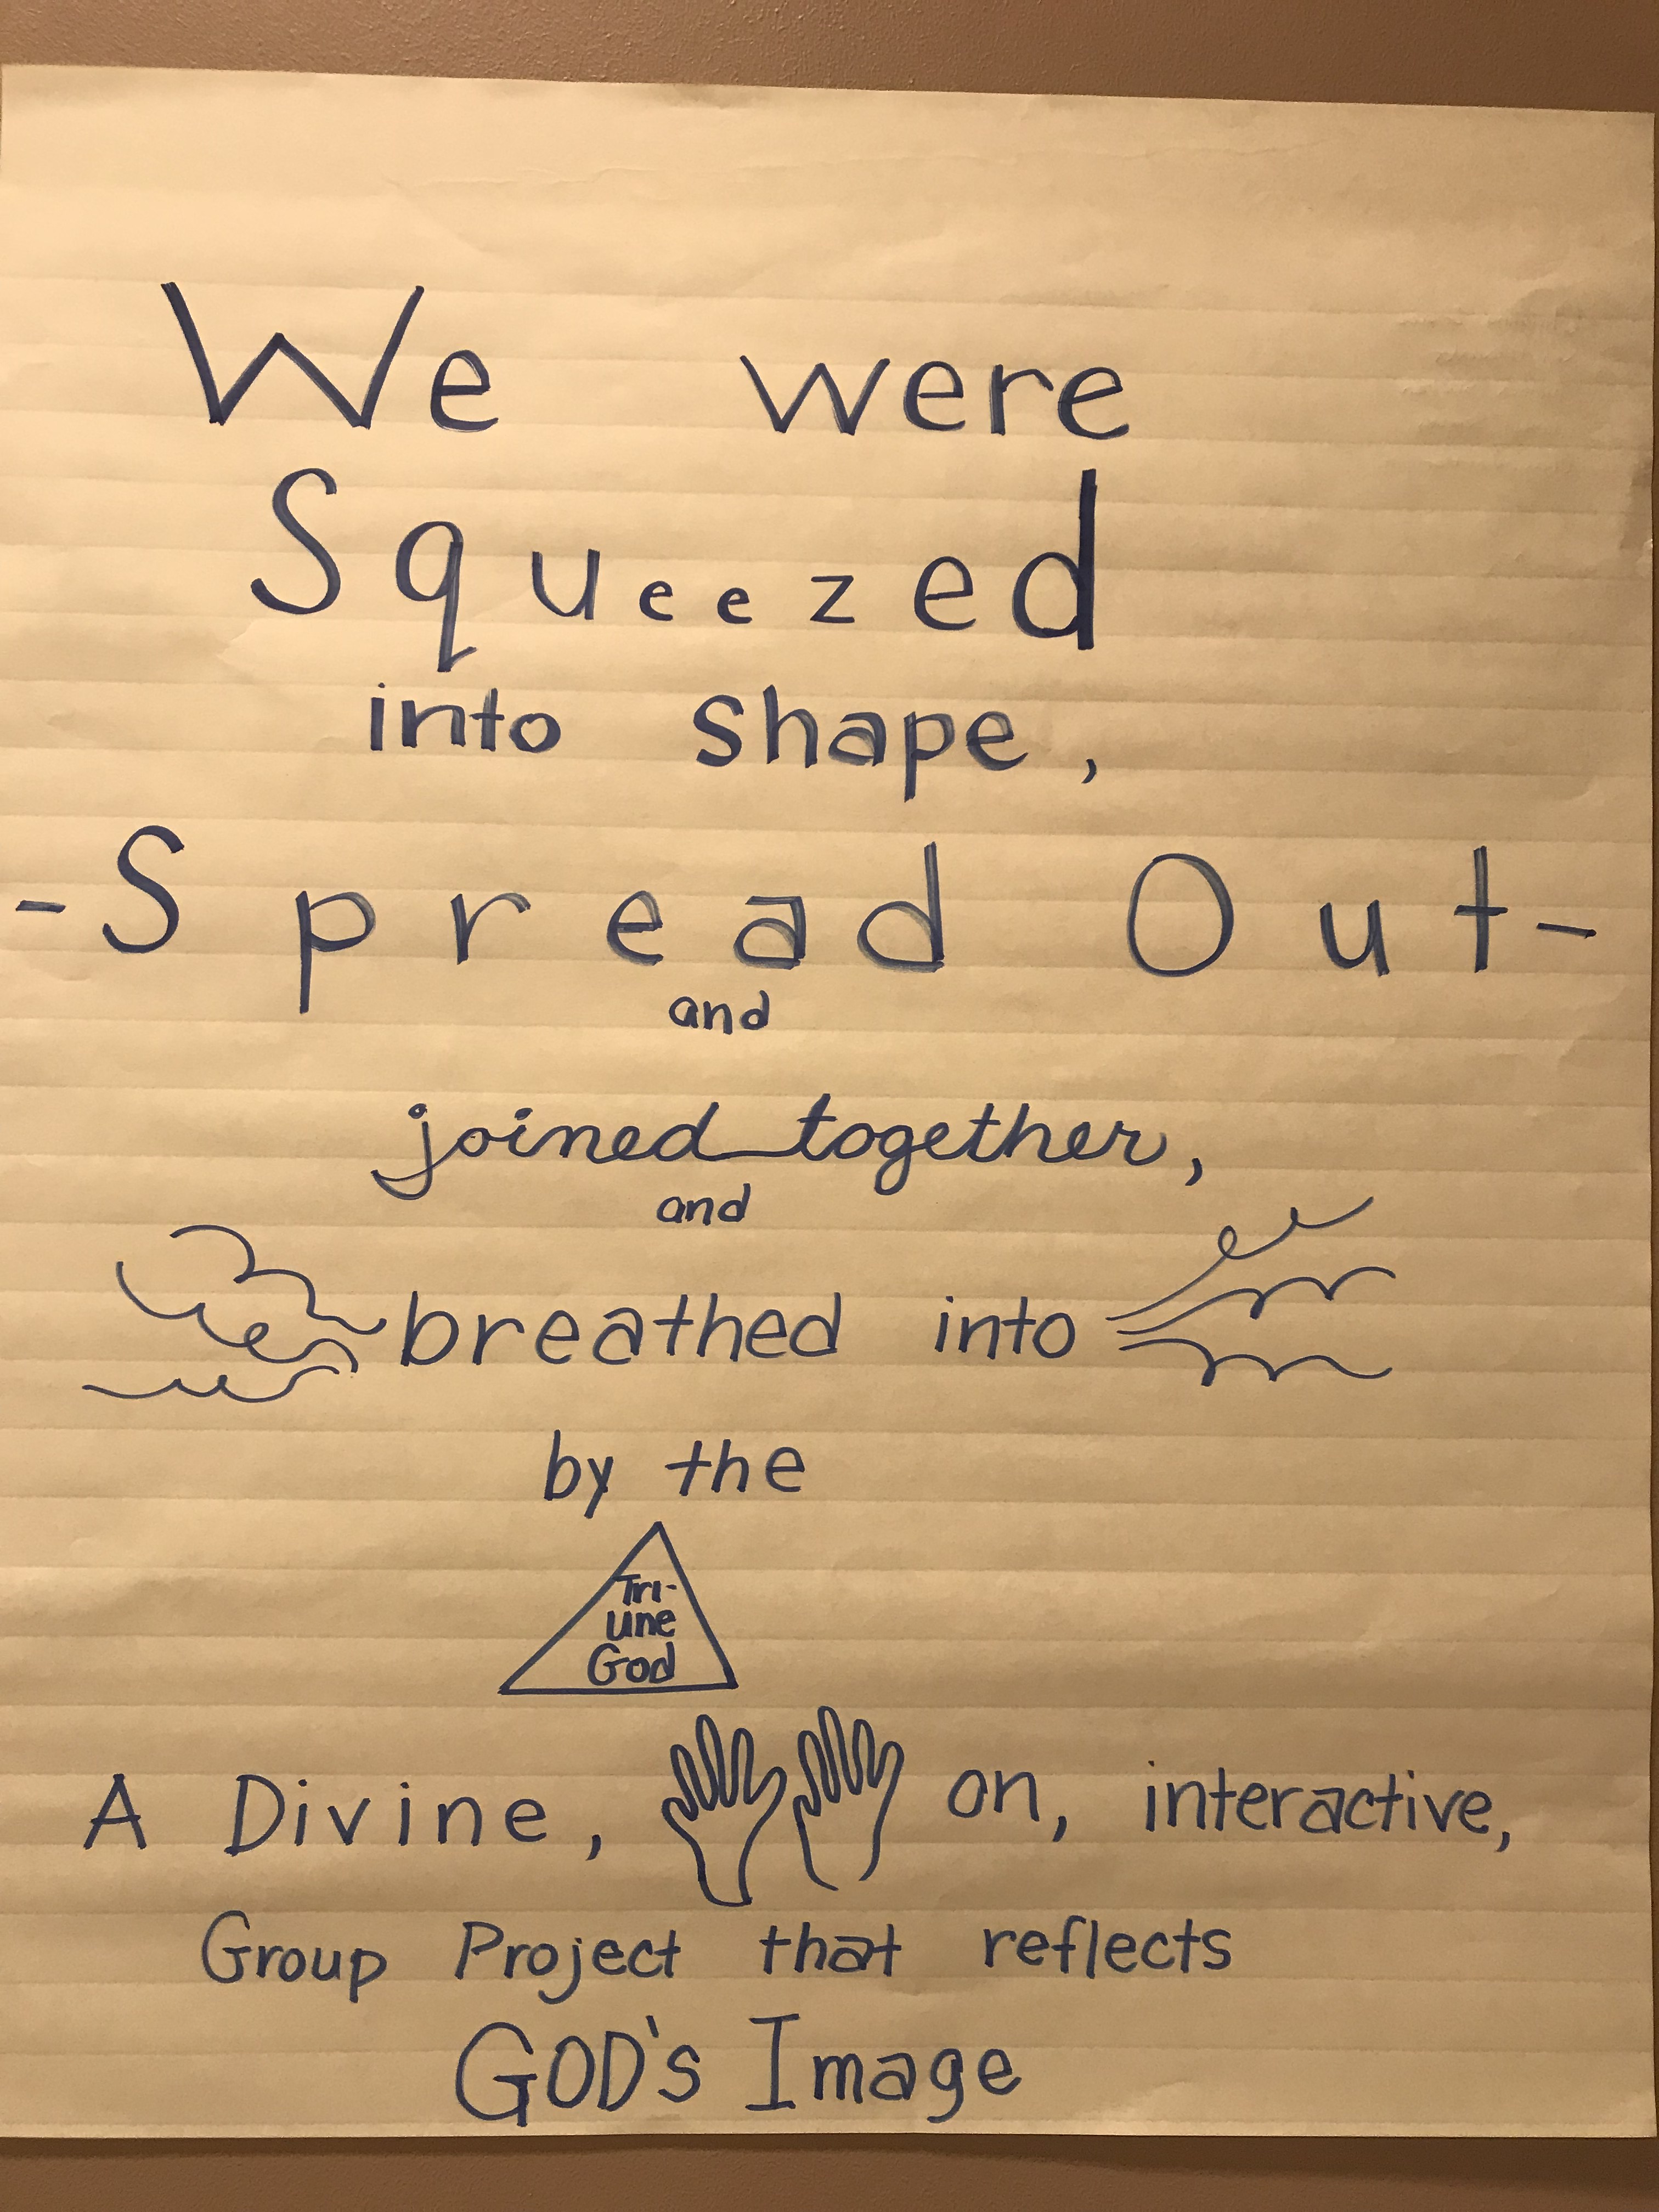 We were
Squeezed
into shape,
-Spread Out-
and
joined together,
and
breathed into
by the
Tri-
une
God
A Divine, on, interactive,
Group Project that reflects
GOD's Image